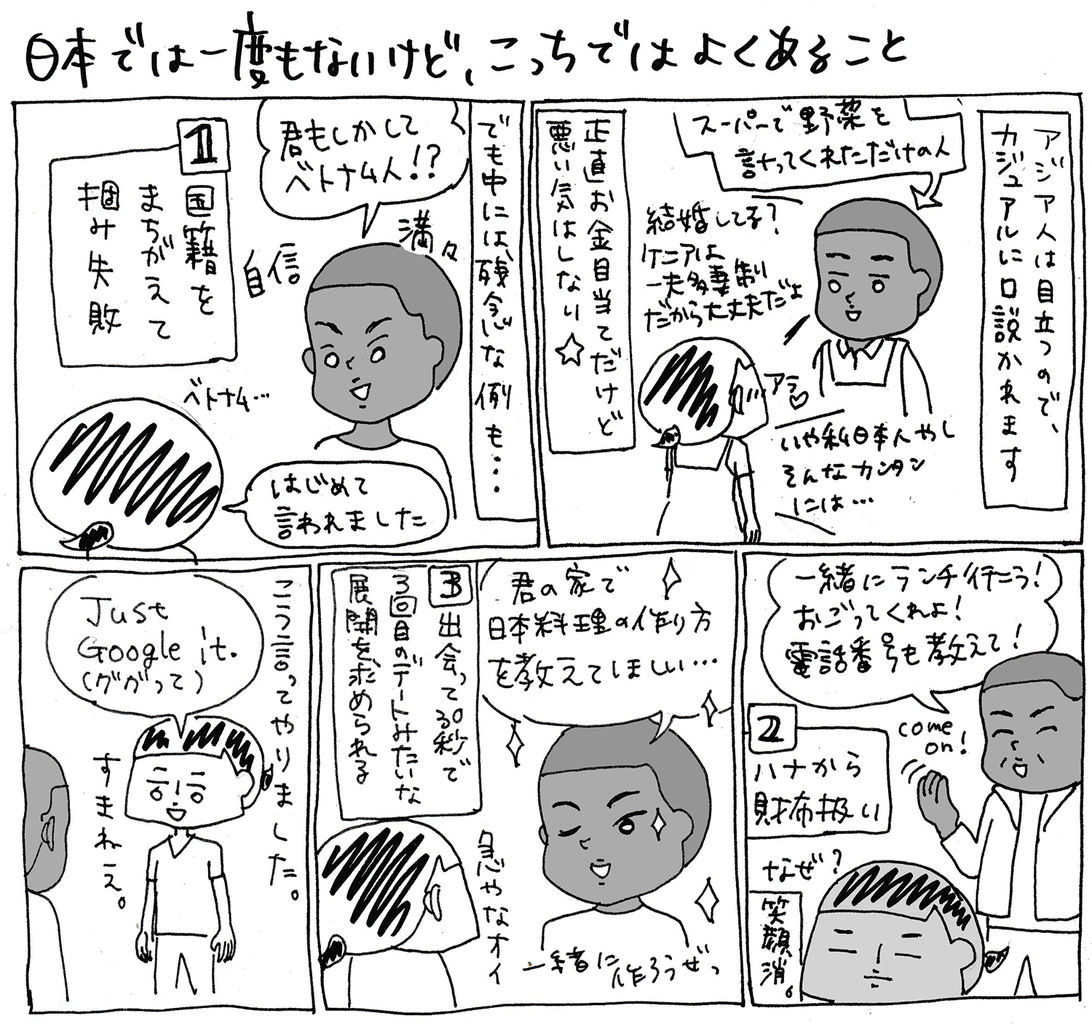 日本では一度もないけど、こっちではよくあること
アジア人は目立つので、
カジュアルに口説かれます
スーパーで野菜を
計ってくれただけの人
結婚してる?
ケニアは
一夫多妻制
だから大丈夫だよ
アラ♡
いや私日本人やし
そんなカンタン
には…
正直お金目当てだけど
悪い気はしない☆
でも中には、残念な例も…
君もしかして
ベトナム人!?
自信
満々
1
国籍を
まちがえて
掴み失敗
ベトナム…
はじめて
言われました
一緒にランチ行こう!
おごってくれよ!
電話番号も教えて!
come
on!
2
ハナから
財布扱い
なぜ?
笑顔消。
君の家で
日本料理の作り方
を教えてほしい…
3
出会って30秒で
3回目のデートみたいな
展開を求められる
急やなオイ
一緒に作ろうぜっ
こう言ってやりました。
Just
Google it.
(ググって)
すまねえ。